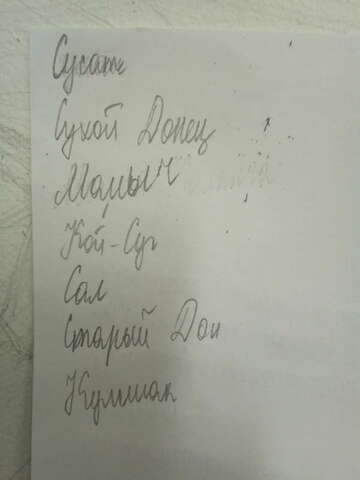 Сусат
Сухой Донец
Маныч
Кой-Суг
Сал
Старый Дон
Кумшак